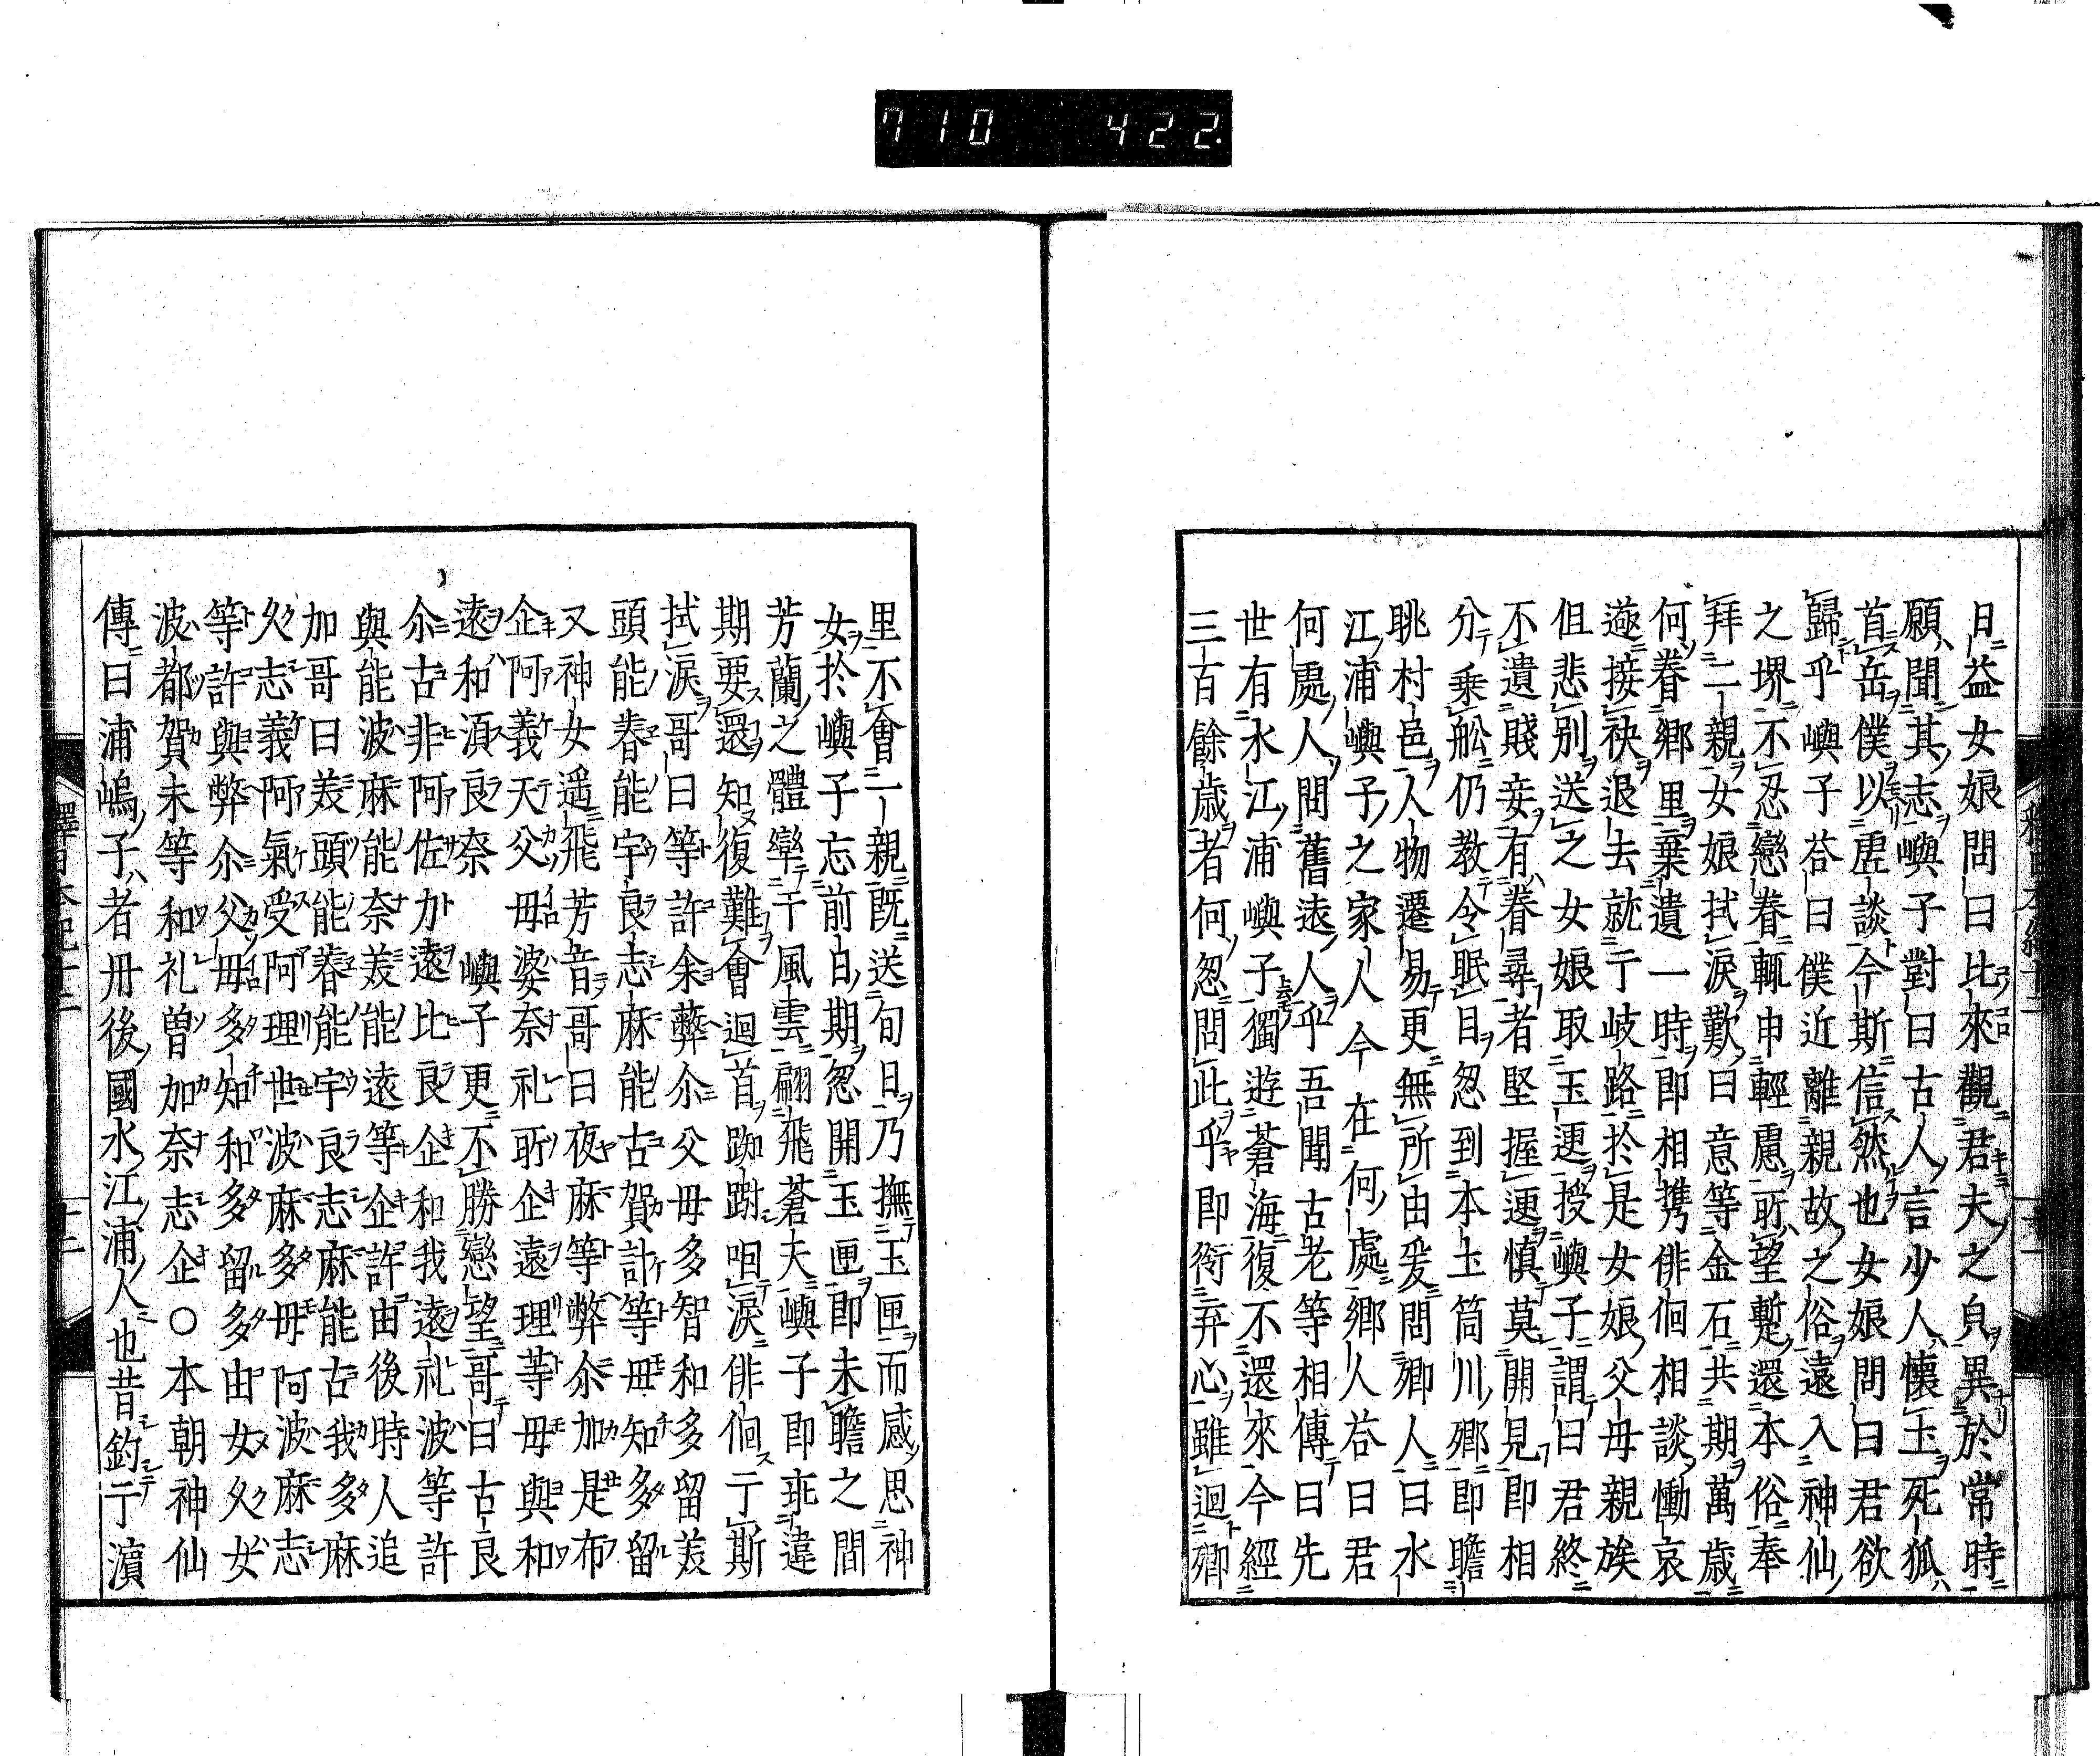 710 422.
日益女娘問曰比來觀君夫之皃異於常時
願聞其志嶼子對曰古人言少人懷土死狐
首岳僕以虗談今斯信然也女娘問曰君欲
歸乎嶼子荅曰僕近離親故之俗遠入神仙
之堺不忍戀眷輒申輕慮所望蹔還本俗奉
拜二親女娘拭淚歎曰意等金石共期萬歳
何眷鄉里棄遺一時即相携俳佪相談慟哀
遂接袂退去就于岐路於是女娘父母親族
但悲別送之女娘取玉匣授嶼子謂曰君終
不遺賤妾有眷尋者堅握匣慎莫開見即相
分乗舩仍教令眠目忽到本土筒川鄉即瞻
眺村邑人物遷易更無所由爰問鄉人曰水
江浦嶼子之家人今在何處鄉人荅曰君
何處人問舊遠人乎吾聞古老等相傳曰先
世有水江浦嶼子獨遊蒼海復不還來今經
三百餘歳者何忽問此乎即銜弃心雖迴鄉
里不會二親既送旬日乃撫玉匣而感思神
女於嶼子忘前日期忽開玉匣即未瞻之間
芳蘭之體率于風雲翩飛蒼天嶼子即乖違
期要還知復難會迴首踟蹰咽淚俳佪于斯
拭淚哥曰等許余弊尒父母多智和多留美
頭能睿能宇良志麻能古賀計等毋知多留
又神女遥飛芳音哥曰夜麻等弊尒加是布
企阿義天父母婆奈礼所企遠理等毋與和
遠和湏良奈 嶼子更不勝戀望哥曰古良
尒古非阿佐力遠比良企和我遠礼波等許
與能波麻能奈美能遠等企許由後時人追
加哥曰美頭能睿能宇良志麻能古我多麻
久志義阿氣受阿理世波麻多毋阿波麻志
等許與弊尒父母多知和多留多由女久女
波都賀未等和礼曽加奈志企○本朝神仙
傳曰浦嶋子者丹後國水江浦人也昔釣于濵